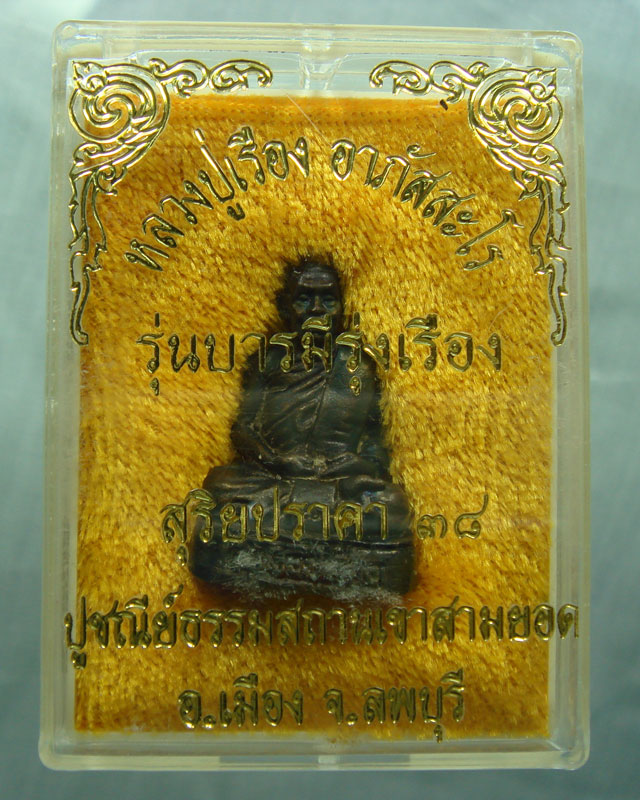 หลวงปู่เรือง อาภัสสะโร
รุ่นบารมีรุ่งเรือง
สุริยปราคา ๓๘
ปูชณีย์ธรรมสถานเขาสามยอด
อ.เมือง จ.ลพบุรี